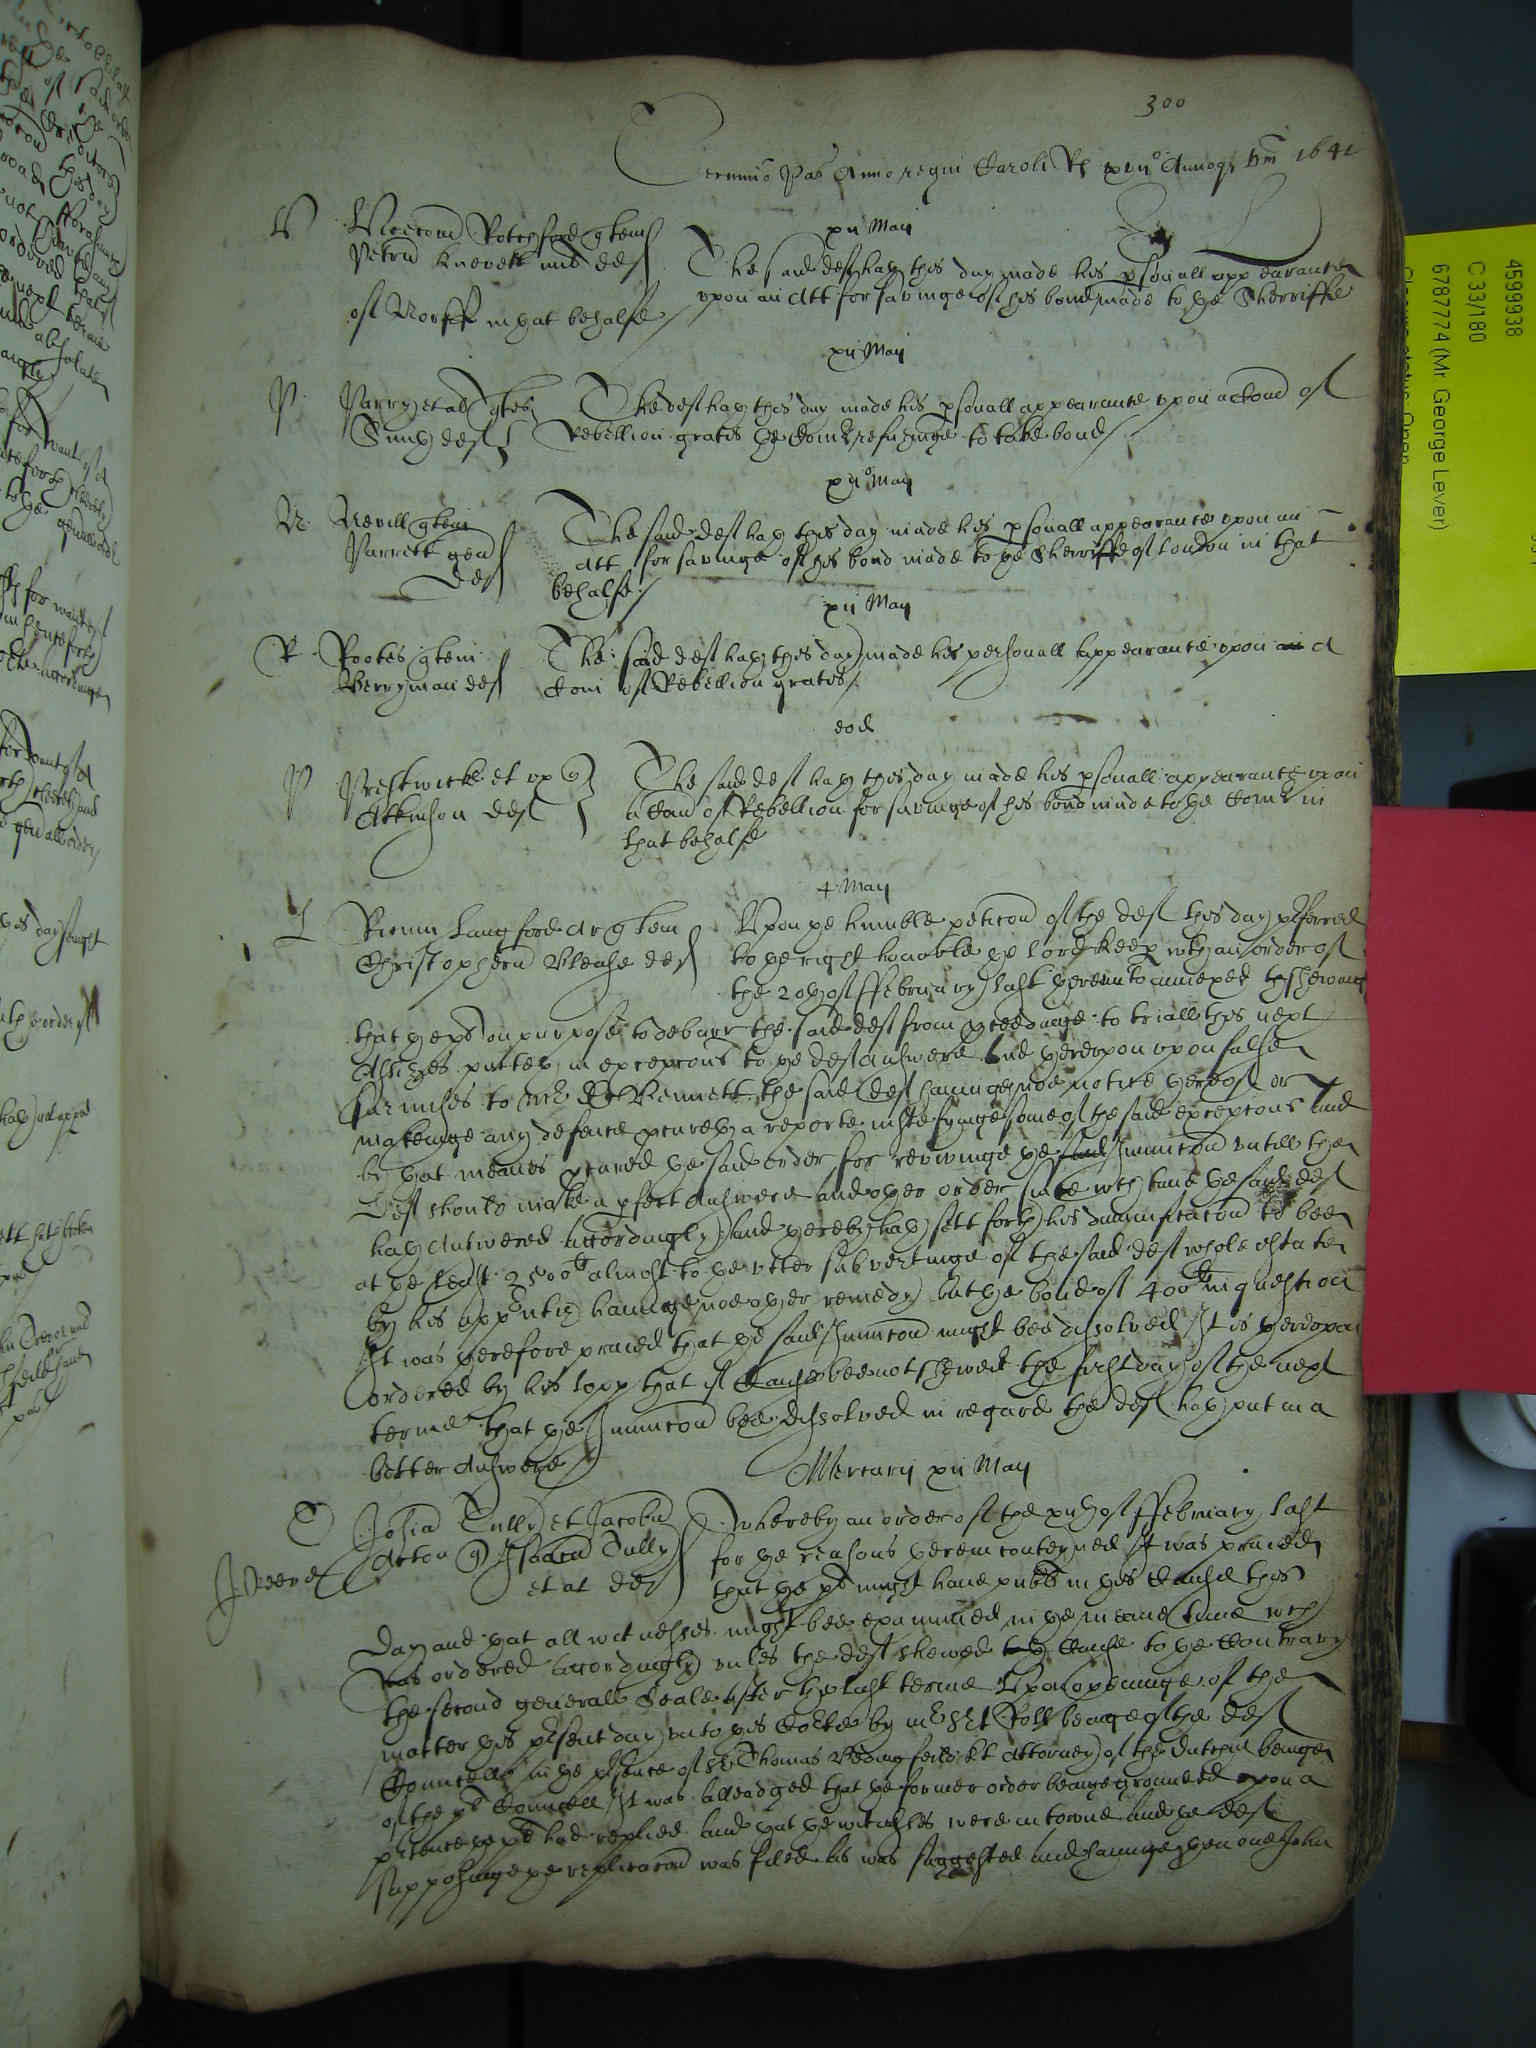 300
Termino Pas Anno regni Caroli Rs xvii° Annoq Dm 1641
xii Maij
V Vicecom Rotchford quer
Petru Knevett mil def
The said def hath this day made his psonall appearance
upon an Att for savinge of his bond made to ye Sherriffe
of Norff in that behalfe
xii Maij
P Parry et al ques
Smith def
The def hath this day made his psonall appearance upon a Com of
Rebellion gratis ye Comrs refusinge to take bond
xii° Maij
N Nevill quer
Parrett gen
def
The said def hath this day made his psonall appearance upon an
Att for savinge of his bond made to ye Sherriffe of London in that
behalfe
xii Maij
R Rookes quer
Berryman def
The said def hath this day made his personall appearance upon an a
Com of Rebellion gratis
eod
P Prestwicke et ux q
Atkinson def
The said def hath this day made his psonall appearance upon
a Com of Rebellion for savinge of his bond made to ye Comrs in
that behalfe
4 Maij
L Langford Ar quer
Christopheru def
Upon ye humble peticon of the def this day pferred
to ye right honoble ye lord Keep wth an order of
the 20th of ffebruary last hereunto annexed shewinge
that ye plt on purpose to debarr the said def from pceedinge to triall this next
Assizes putteth in excepcons to ye def answere And thereupon upon false
surmises to mr Dr Bennett the said def havinge noe notice thereof or
makeinge any defence pcureth a reporte instefyinge some of the said excepcons And
by that meanes pcured ye said order for revivinge ye said Iniuncon untill the
def should make a pfect answere and other order since wch time ye said def
hath Answered Accordingly and thereby hath sett forth his damnificacon to bee
at ye least 2500li almost to ye utter subvertinge of the said def whole estate
by his appntice havinge noe other remedy but ye bond of 400li in question
It was therefore praied that ye said Iniuncon might bee dissolved It is thereupon
ordered by his lopp that if Cause bee not shewed the first day of the next
terme that ye Iniuncon bee dissolved in regard the def hath put in a
better Answere
Mercurij xii Maij
T Tully et Jacobu
Acton q Isaacu Tully
et al def
Whereby an order of the xiith of ffebruary last
for ye reasons therein conteyned It was praied
that ye plt might have publ in this Cause this
day and that all witnesses might bee examined in ye meane time wch
was ordered Accordingly unles the def shewed Cause to ye Contrary
the second generall Seale after the last terme Upon openinge of the
matter this psent day unto this Corte by mr Sert Roll beinge of the def
Councell in ye psence of Sr Thomas Bedingfeild kt Attorney of the Dutchy beinge
of the plt Councell It was Alleadged that ye former order beinge grounded upon a
ptence ye plt had replied And that ye witnesses were in towne And ye def
supposinge ye replicacon was filed As was suggested and havinge then one John
4599938
C 33/180
6787774 (Mr. George Lever)